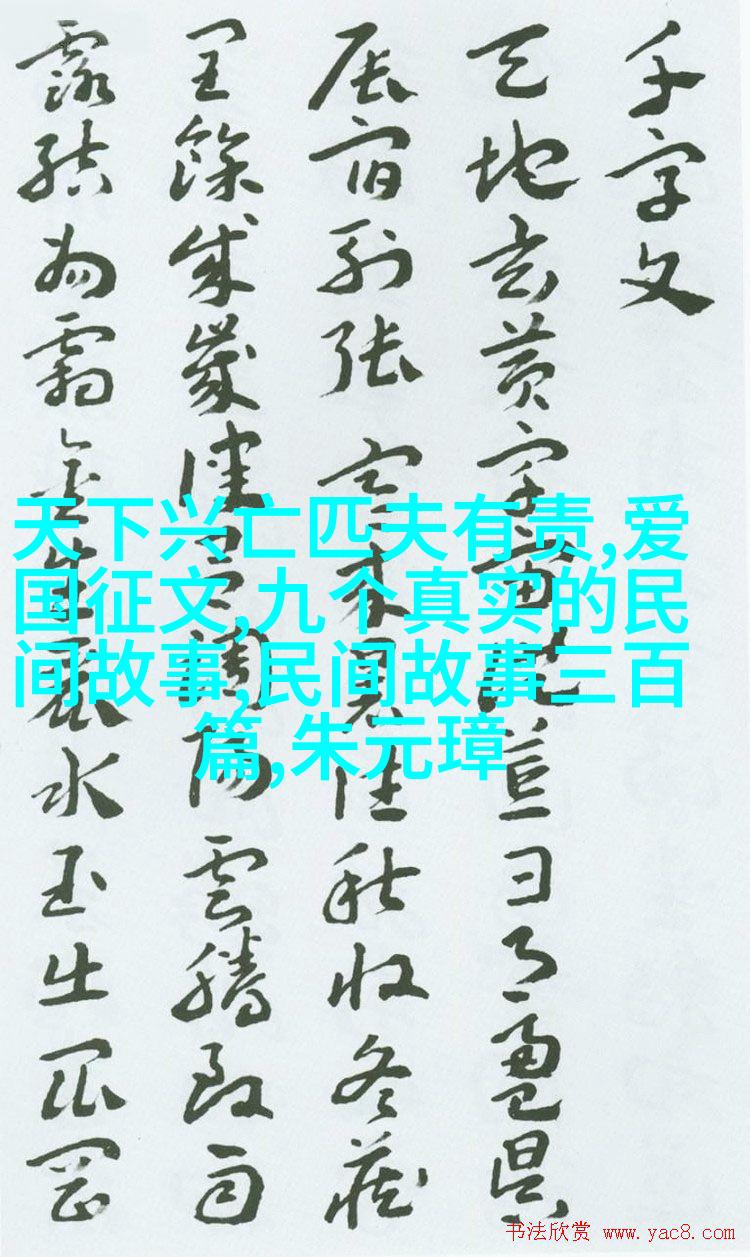 千字文
天地玄黄宇宙洪荒日月盈昃
辰宿列張寒来暑往秋收冬藏
閏餘成歲律吕調陽雲騰致雨
露結為霜金生麗水玉出崑岡
天下兴亡匹夫有责,爱
国征文,九个真实的民
间故事,民间故事三百
篇,朱元璋
书法欣赏 www.yac8.com